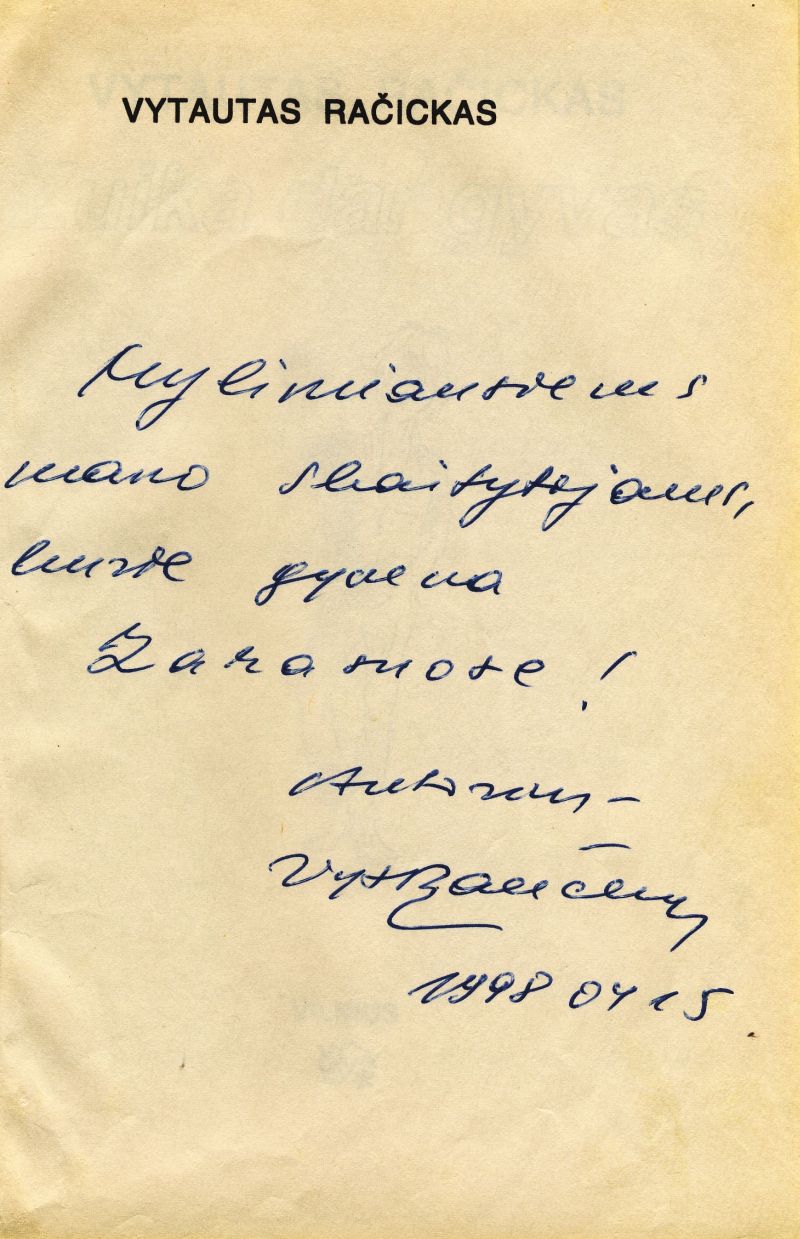 VYTAUTAS RAČICKAS
Mylimiausiems
mano skaitytojams,
kurie gyvena
Zarasuose!
Autorius –
1998 04 15